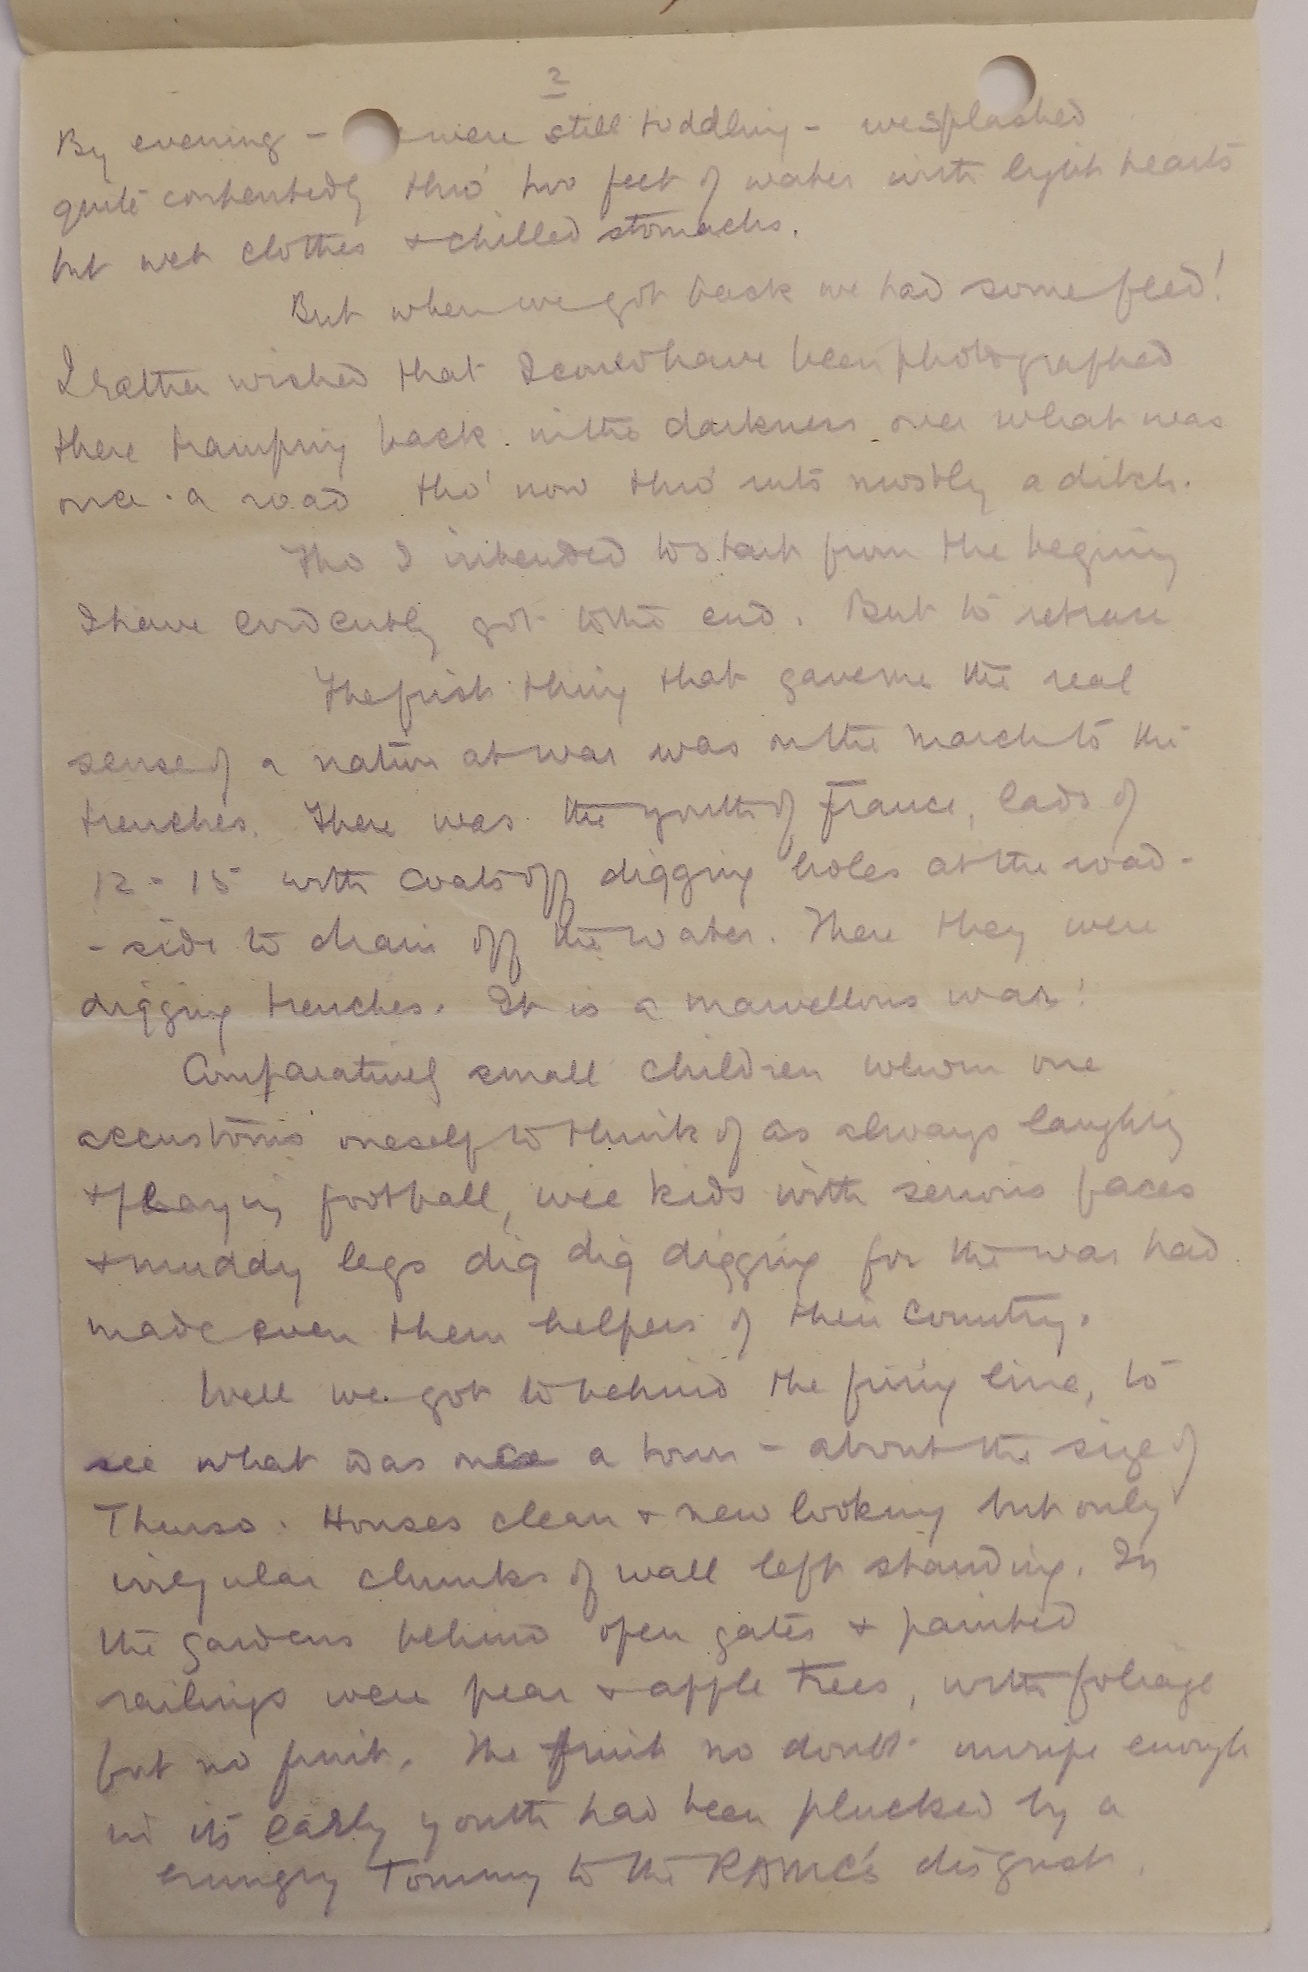 2
By evening - were still toddling - we splashed
quite contentedly thro' two feet of water with light hearts
but wet clothes + chilled stomachs.
But when we got back we had some feed!
I rather wished that I could have been photographed
there tramping back in the darkness over what was
once a road tho' now thro' ruts mostly a ditch.
Tho I intended to start from the begining
I have evidently got to the end. But to retrace
The first thing that gave me the real
sense of a nation at war was on the march to the
trenches. There was the youth of France, lads of
12 - 15 with coats off digging holes at the road-
-side to drain off the water. There they were
digging trenches. It is a marvellous war!
Comparatively small children whom one
accustoms oneself to think of as always laughing
+ playing football, wee kids with serious faces
+ muddy legs dig dig digging for the war had
made even them helpers of their country.
Well we got to behind the firing line, to
see what was once a town - about the size of
Thurso. Houses clean + new looking but only
irregular chunks of wall left standing. In
the gardens behind open gates + painted
railings were pear + apple trees, with foliage
but no fruit. The fruit no doubt unripe enough
in its early youth had been plucked by a
hungry Tommy to the RAMC's disgust.